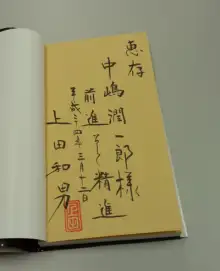 恵存
中嶋潤一郎様
前進そして精進
平成二四年三月十二日
上田和男